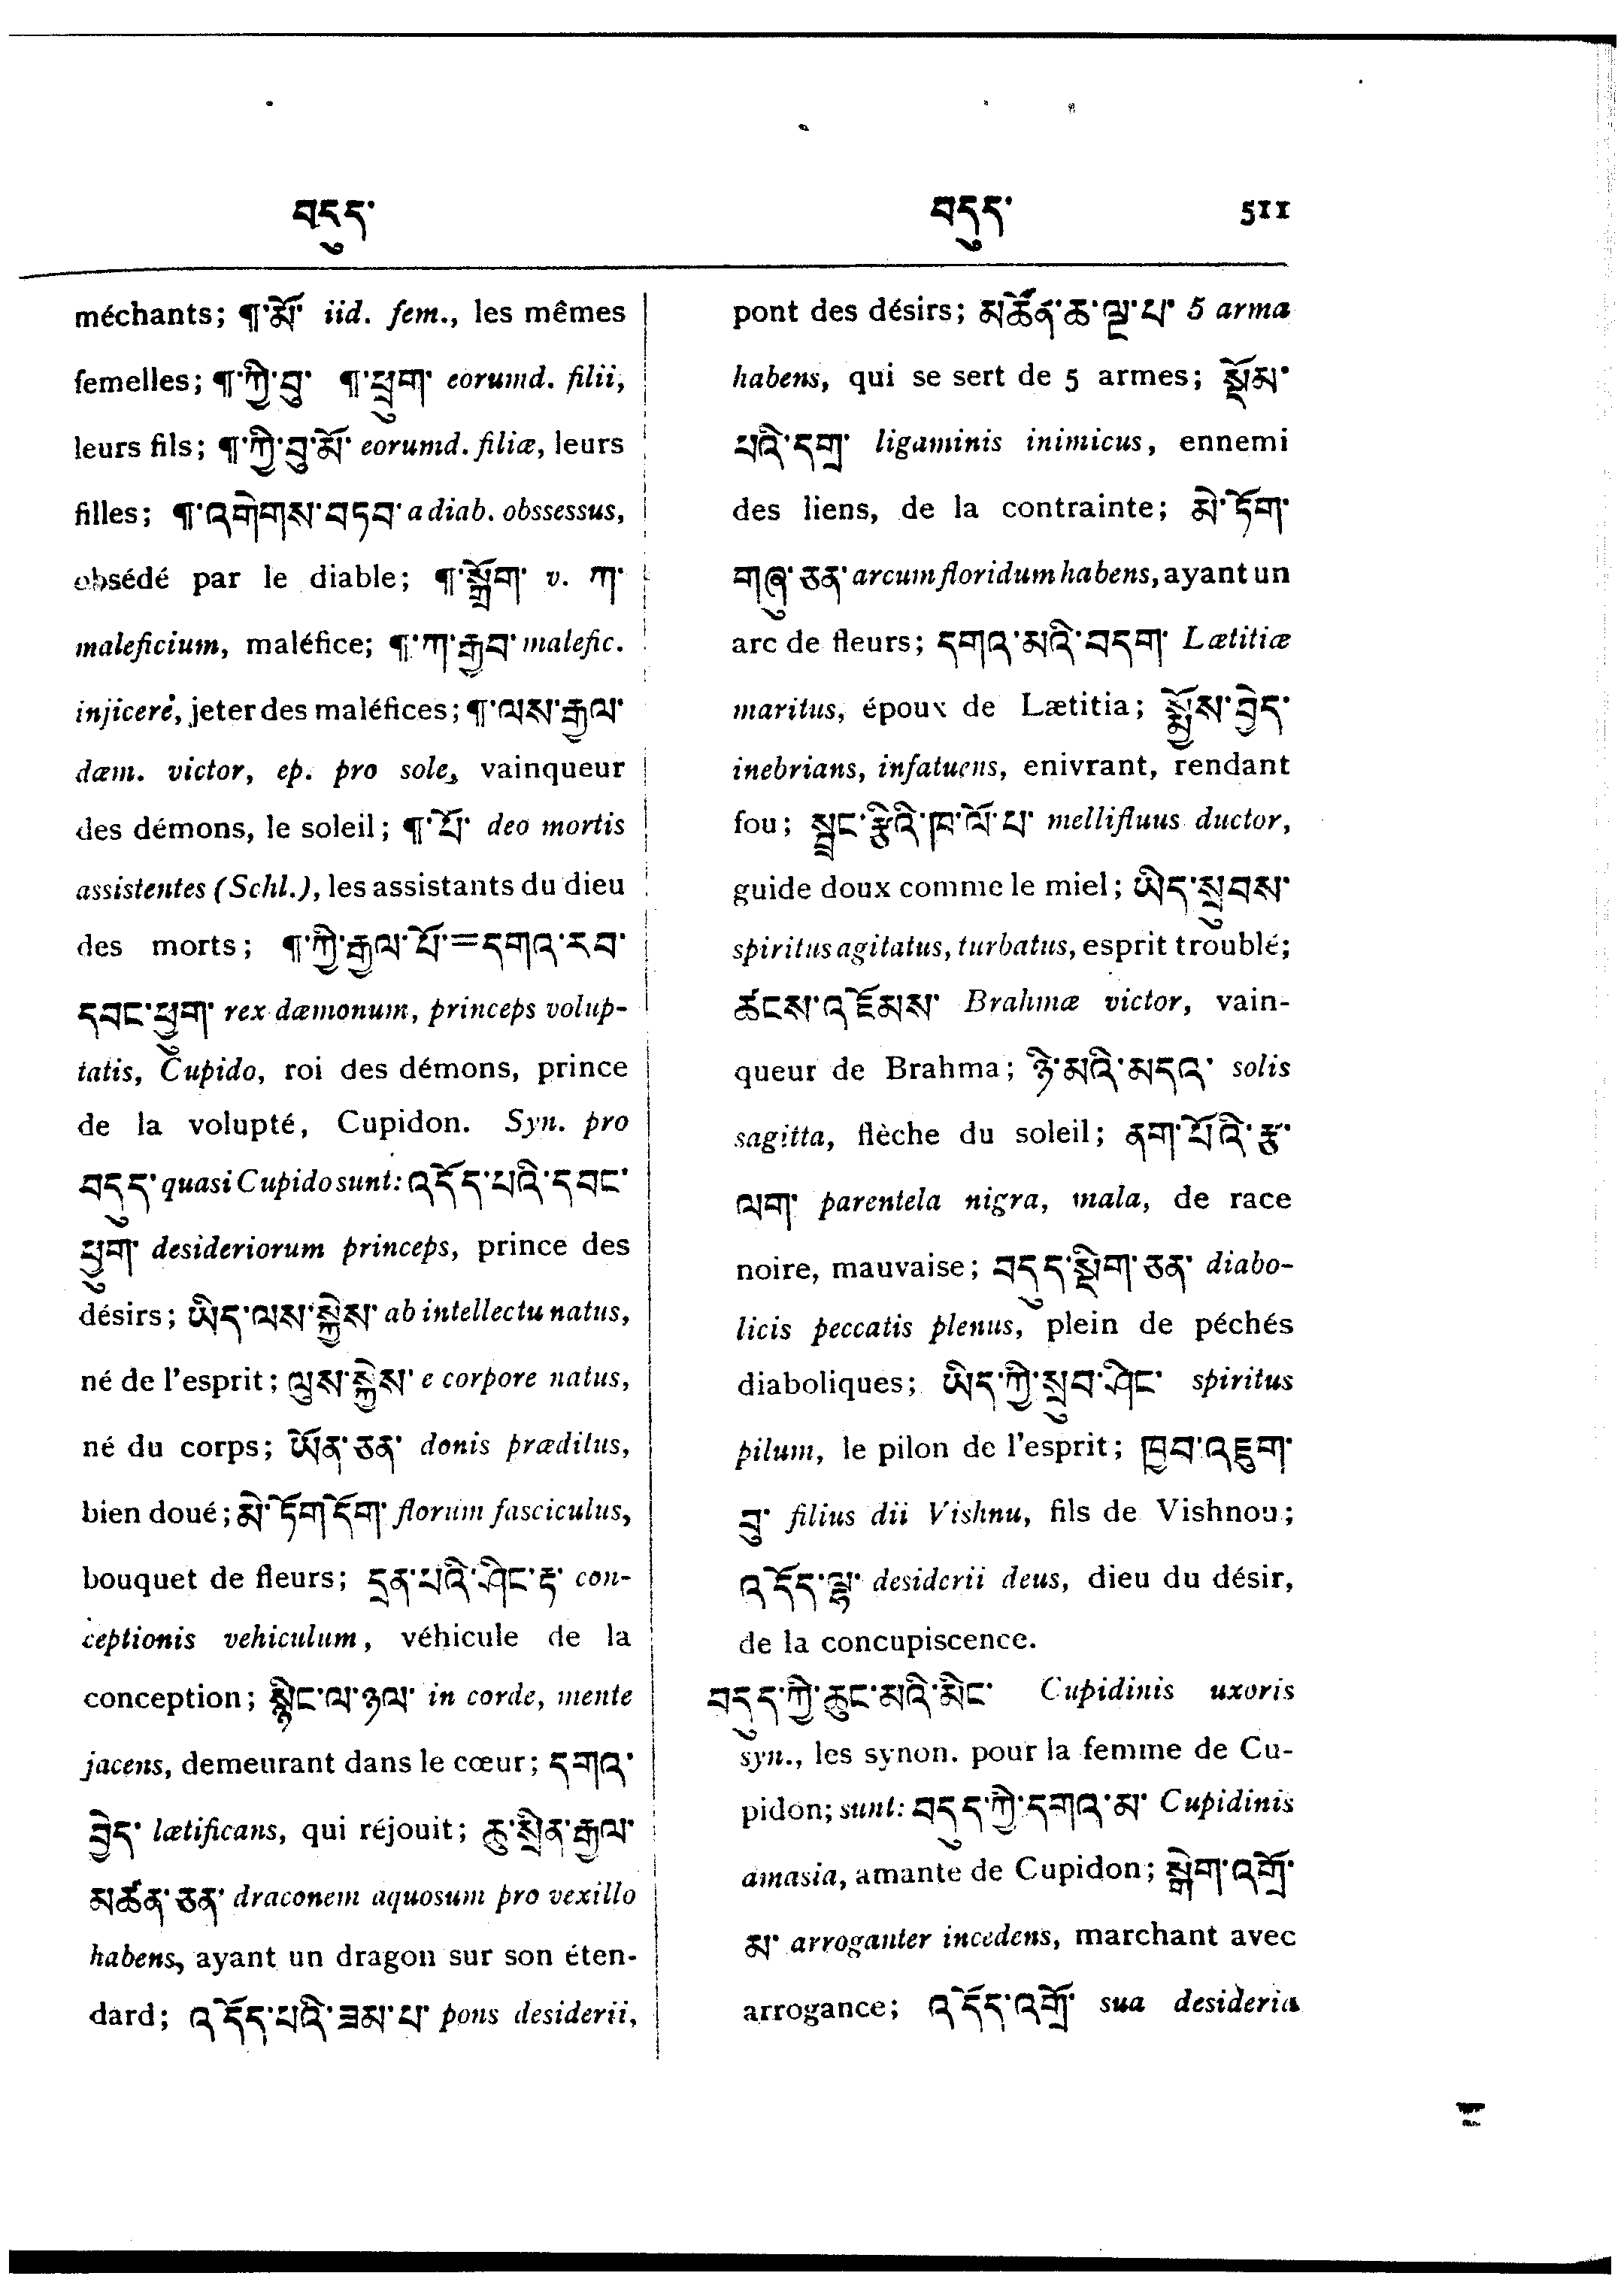 བདུད་
བདུད་ 511
méchants; ¶་མོ་ iid. fem., les mêmes
femelles; ¶་ཀྱི་བུ་ ¶་ཕྲུག་ eorumd. filii,
leurs fils; ¶་ཀྱི་བུ་མོ་ eorumd. filiæ, leurs
filles; ¶་འགེགས་བཏབ་ a diab. obssessus,
obsédé par le diable; ¶་སྐྲོག་ v. ཀ་
maleficium, maléfice; ¶་ཀ་རྒྱབ་ malefic.
injicere, jeter des maléfices; ¶་ལས་རྒྱལ་
dæm. victor, ep. pro sole, vainqueur
des démons, le soleil; ¶་པོ་ deo mortis
assistentes (Schl.), les assistants du dieu
des morts; ¶་ཀྱི་རྒྱལ་པོ་=དགའ་རབ་
དབང་ཕྱུག་ rex dæmonum, princeps volup-
tatis, Cupido, roi des démons, prince
de la volupté, Cupidon. Syn. pro
བདུད་ quasi Cupido sunt: འདོད་པའི་དབང་
ཕྱུག་ desideriorum princeps, prince des
désirs; ཡིད་ལས་སྐྱེས་ ab intellectu natus,
né de l'esprit; ལུས་སྐྱེས་ e corpore natus,
né du corps; ཡོན་ཅན་ donis præditus,
bien doué; མེ་ཏོག་དོག་ florum fasciculus,
bouquet de fleurs; དྲན་པའི་ཤིང་རྟ་ con-
ceptionis vehiculum, véhicule de la
conception; སྙིང་ལ་ཉལ་ in corde, mente
jacens, demeurant dans le cœur; དགའ་
བྱེད་ lætificans, qui réjouit; ཆུ་སྲིན་རྒྱལ་
མཚན་ཅན་ draconem aquosum pro vexillo
habens, ayant un dragon sur son éten-
dard; འདོད་པའི་ཟམ་པ་ pons desiderii,
pont des désirs; མཚོན་ཆ་ལྔ་པ་ 5 arma
habens, qui se sert de 5 armes; སྡོམ་
པའི་དགྲ་ ligaminis inimicus, ennemi
des liens, de la contrainte; མེ་ཏོག་
གཞུ་ཅན་ arcum floridum habens, ayant un
arc de fleurs; དགའ་མའི་བདག་ Lætitiæ
maritus, époux de Lætitia; སྨྱོས་བྱེད་
inebrians, infatuens, enivrant, rendant
fou; སྦྲང་རྩིའི་ཁ་ལོ་པ་ mellifluus ductor,
guide doux comme le miel; ཡིད་སྲུབས་
spiritus agitatus, turbatus, esprit troublé;
ཚངས་འཇོམས་ Brahmæ victor, vain-
queur de Brahma; ཉི་མའི་མདའ་ solis
sagitta, flèche du soleil; ནག་པོའི་རྩ་
ལག་ parentela nigra, mala, de race
noire, mauvaise; བདུད་སྡིག་ཅན་ diabo-
licis peccatis plenus, plein de péchés
diaboliques; ཡིད་ཀྱི་སྲུབ་ཤིང་ spiritus
pilum, le pilon de l'esprit; ཁྱབ་འཇུག་
བུ་ filius dii Vishnu, fils de Vishnou;
འདོད་ལྷ་ desiderii deus, dieu du désir,
de la concupiscence.
བདུད་ཀྱི་ཆུང་མའི་མིང་ Cupidinis uxoris
syn., les synon. pour la femme de Cu-
pidon; sunt: བདུད་ཀྱི་དགའ་མ་ Cupidinis
amasia, amante de Cupidon; སྒེག་འགྲོ་
མ་ arroganter incedens, marchant avec
arrogance; འདོད་འགྲོ་ sua desideria